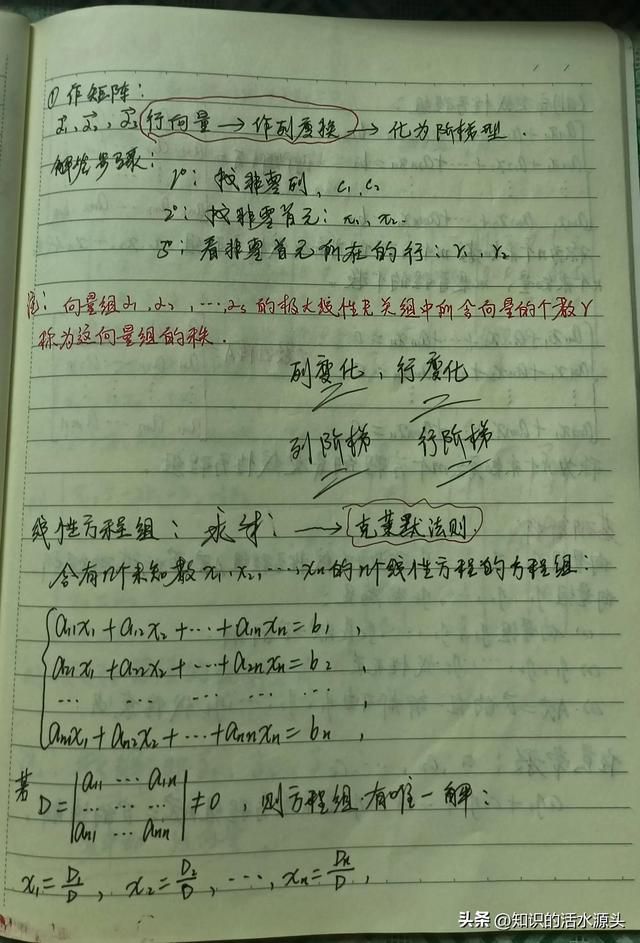 ① 作矩阵:
α⃗1, α⃗2, α⃗3 行向量 → 作列变换 → 化为阶梯型.
解答步骤:
1°: 找非零列, c1, c2
2°: 找非零首元: x1, x2.
3°: 看非零首元所在的行: r1, r2
注: 向量组α1, α2, ⋯, αs 的极大线性无关组中所含向量的个数r
称为这向量组的秩.
列变化, 行变化
列阶梯 行阶梯
线性方程组: 求解: → 克莱默法则
含有n个未知数x1, x2, ⋯, xn的n个线性方程的方程组:
a11x1 + a12x2 + ⋯ + a1nxn = b1,
a21x1 + a22x2 + ⋯ + a2nxn = b2,
⋯ ⋯ ⋯ ⋯ ⋯,
an1x1 + an2x2 + ⋯ + annxn = bn,
若 D = |a11 ⋯ a1n
⋯ ⋯ ⋯
an1 ⋯ ann| ≠ 0, 则方程组有唯一解:
x1 = D1/D, x2 = D2/D, ⋯, xn = Dn/D,
头条 @知识的活水源头